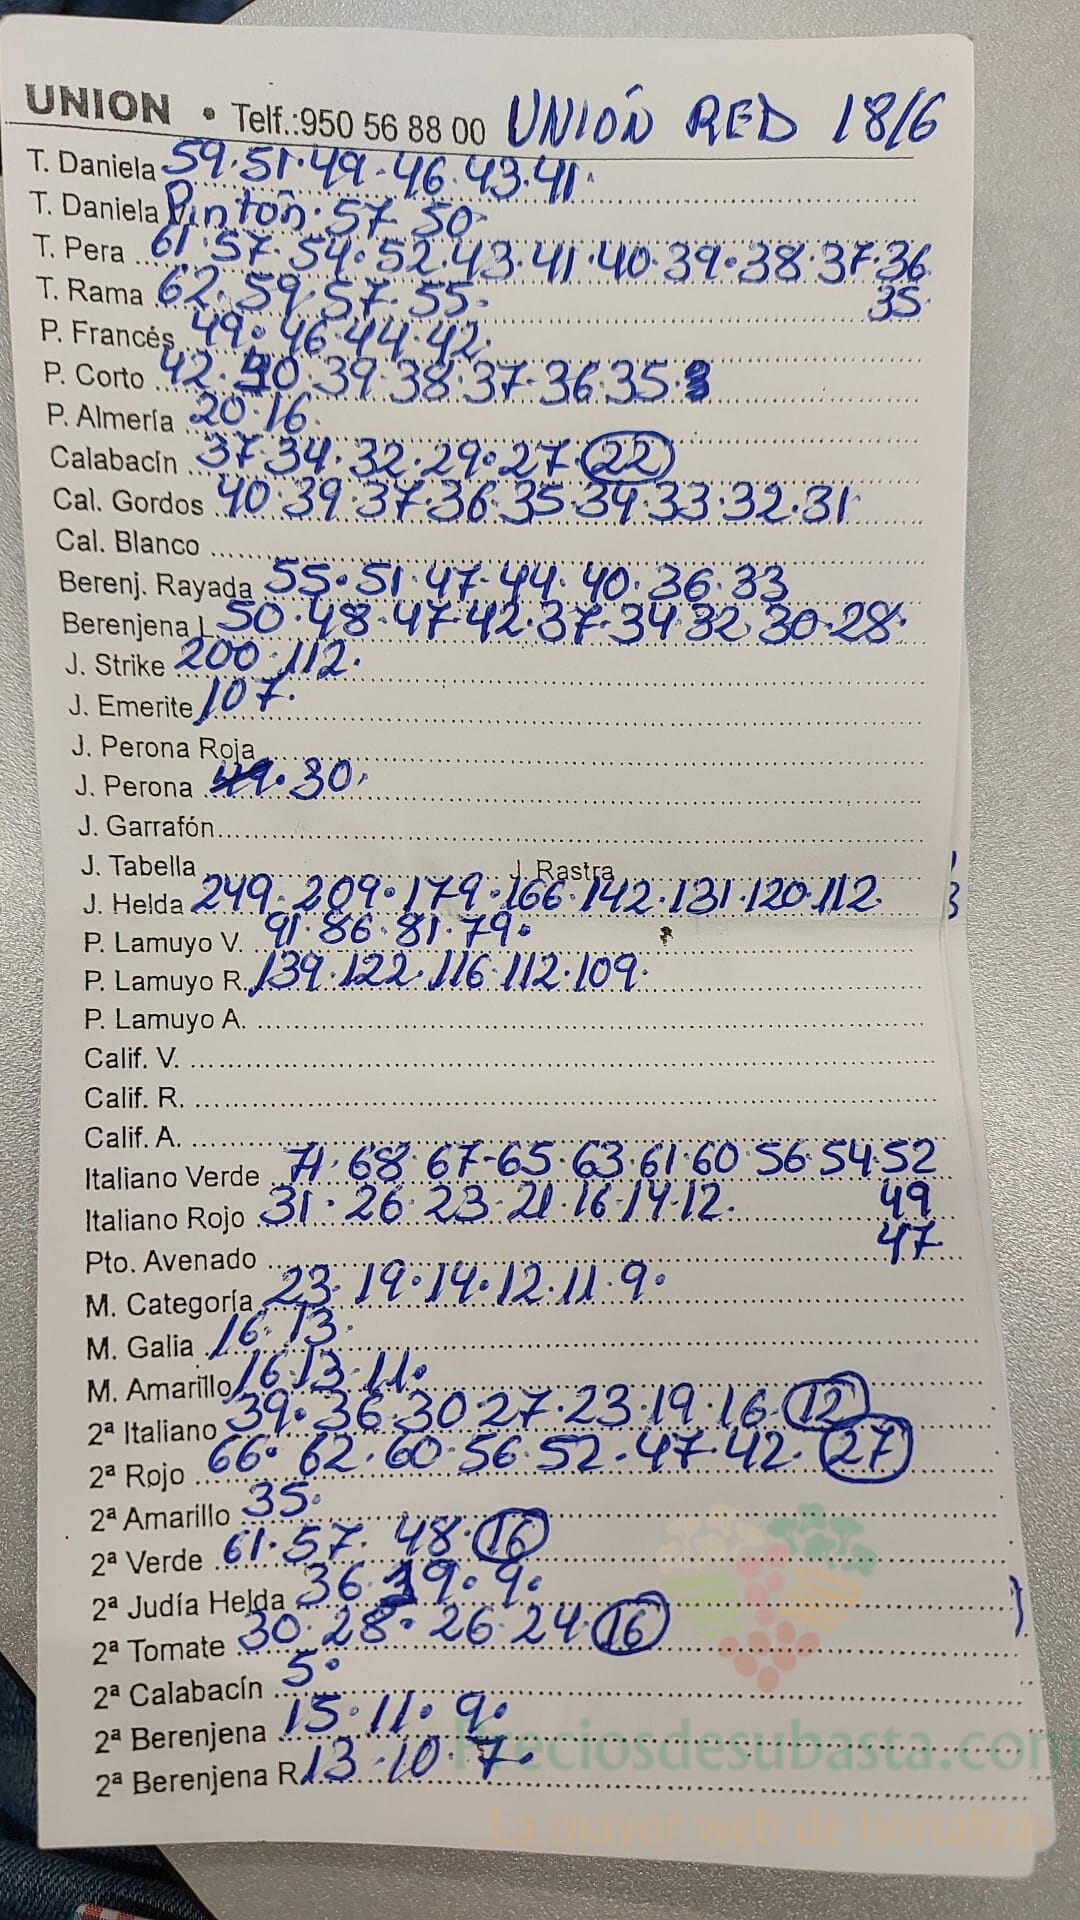 UNION • Telf.:950 56 88 00 UNIÓN RED 18/6
T. Daniela 59·51·49·46·43·41·
T. Daniela V. Pintón·57·50·
T. Pera 61·57·54·52·43·41·40·39·38·37·36
35·
T. Rama 62·59·57·55·
P. Francés 49·46·44·42·
P. Corto 42·40·39·38·37·36·35·
P. Almería 20·16·
Calabacín 37·34·32·29·27·22
Cal. Gordos 40·39·37·36·35·34·33·32·31·
Cal. Blanco
Berenj. Rayada 55·51·47·44·40·36·33
Berenjena L 50·48·47·42·37·34·32·30·28·
J. Strike 200·112·
J. Emerite 107·
J. Perona Roja
J. Perona 49·30·
J. Garrafón
J. Tabella J. Rastra
J. Helda 249·209·179·166·142·131·120·112·
P. Lamuyo V. 91·86·81·79·
P. Lamuyo R. 139·122·116·112·109·
P. Lamuyo A.
Calif. V.
Calif. R.
Calif. A.
Italiano Verde 71·68·67·65·63·61·60·56·54·52
49
47·
Italiano Rojo 31·26·23·21·16·14·12·
Pto. Avenado
M. Categoría 23·19·14·12·11·9·
M. Galia 16·13·
M. Amarillo 16·13·11·
2ª Italiano 39·36·30·27·23·19·16·12
2ª Rojo 66·62·60·56·52·47·42·27
2ª Amarillo 35·
2ª Verde 61·57·48·16
2ª Judía Helda 36·19·9·
2ª Tomate 30·28·26·24·16
2ª Calabacín 5·
2ª Berenjena 15·11·9·
2ª Berenjena R. 13·10·7·
Preciosdesubasta.com
La mayor web de hortalizas